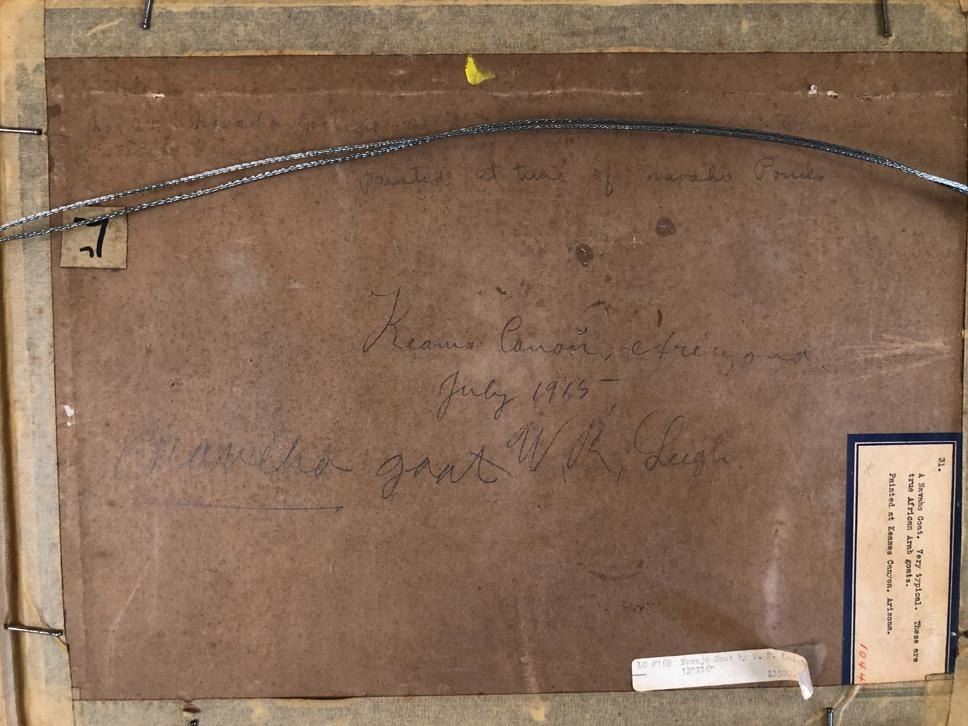 painted at time of navaho Ponies
7
Keams Canoñ, Arizona
July 1915
Navaho goat W. R. Leigh
31.
A Navaho Goat. Very typical. These are
true African Arab goats.
Painted at Keames Canyon, Arizona.
104
LO #169 Navajo Goat by W. R.
13"X16"